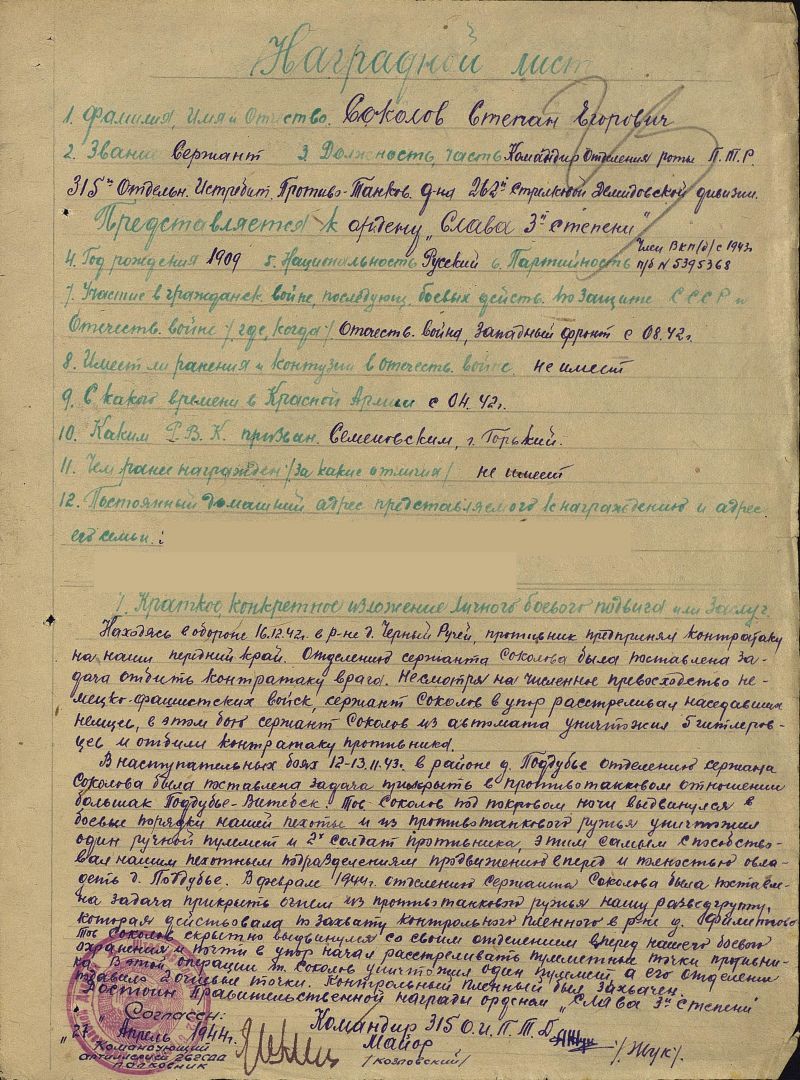 Наградной лист
1. Фамилия, Имя и Отчество. Соколов Степан Егорович
2. Звание Сержант 3. Должность, часть Командир Отделения роты П.Т.Р.
315го Отдельн. Истребит. Противо-Танков. д-на 262й Стрелковой Демидовской дивизии.
Представляется к ордену „Слава 3й степени"
4. Год рождения 1909 5. Национальность Русский 6. Партийность Член ВКП(б) с 1943г п/б № 5395368
7. Участие в гражданск. войне, последующ. боевых действ. по защите СССР и
Отечеств. войне /где, когда/ Отечеств. война, Западный фронт с 08.42г.
8. Имеет ли ранения и контузии в отечеств. войне. не имеет
9. С какого времени в Красной Армии с 04.42г.
10. Каким Р.В.К. призван. Семеновским, г. Горький.
11. Чем ранее награжден /за какие отличия/ не имеет
12. Постоянный домашний адрес представляемого к награждению и адрес
его семьи.:
1. Краткое, конкретное изложение личного боевого подвига или заслуг.
Находясь в обороне 16.12.42г. в р-не д. Черный Ручей, противник предпринял контратаку
на наш передний край. Отделению сержанта Соколова была поставлена за-
дача отбить контратаку врага. Несмотря на численное превосходство не-
мецко-фашистских войск, сержант Соколов в упор расстреливал наседавших
немцев, в этом бою сержант Соколов из автомата уничтожил 5 гитлеров-
цев и отбили контратаку противника.
В наступательных боях 12-13.11.43г. в районе д. Поддубье отделению сержанта
Соколова была поставлена задача прикрыть в противотанковом отношении
большак Поддубье-Витебск. Тов. Соколов под покровом ночи выдвинулся в
боевые порядки нашей пехоты и из противотанкового ружья уничтожил
один ручной пулемет и 2х солдат противника, этим самым способство-
вал нашим пехотным подразделениям продвижению вперед и полностью овла-
деть д. Поддубье. В феврале 1944г. отделению сержанта Соколова была поставле-
на задача прикрыть огнем из противотанкового ружья нашу разведгруппу,
которая действовала по захвату контрольного пленного в р-не д. Филиппово
Тов Соколов скрытно выдвинулся со своим отделением вперед нашего боевого
охранения и почти в упор начал расстреливать пулеметные точки противни-
ка. В этой операции т. Соколов уничтожил один пулемет, а его отделение
подавило 2 огневые точки. Контрольный пленный был захвачен.
Достоин Правительственной награды орденом „Слава 3й степени"
Согласен: Командир 315 О.И.П.Т.Д.
Апрель 1944г. Майор /Жук/.
Командующий
артиллерией 262 сд
полковник /Козловский/